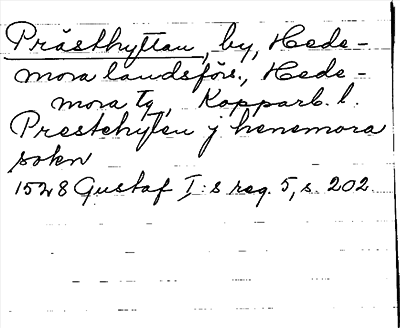 Prästhyttan, by, Hede-
mora landsförs., Hede-
mora tg, Kopparb. l.
Prestehyten j henemora
sokn
1528 Gustaf I:s reg. 5, s. 202